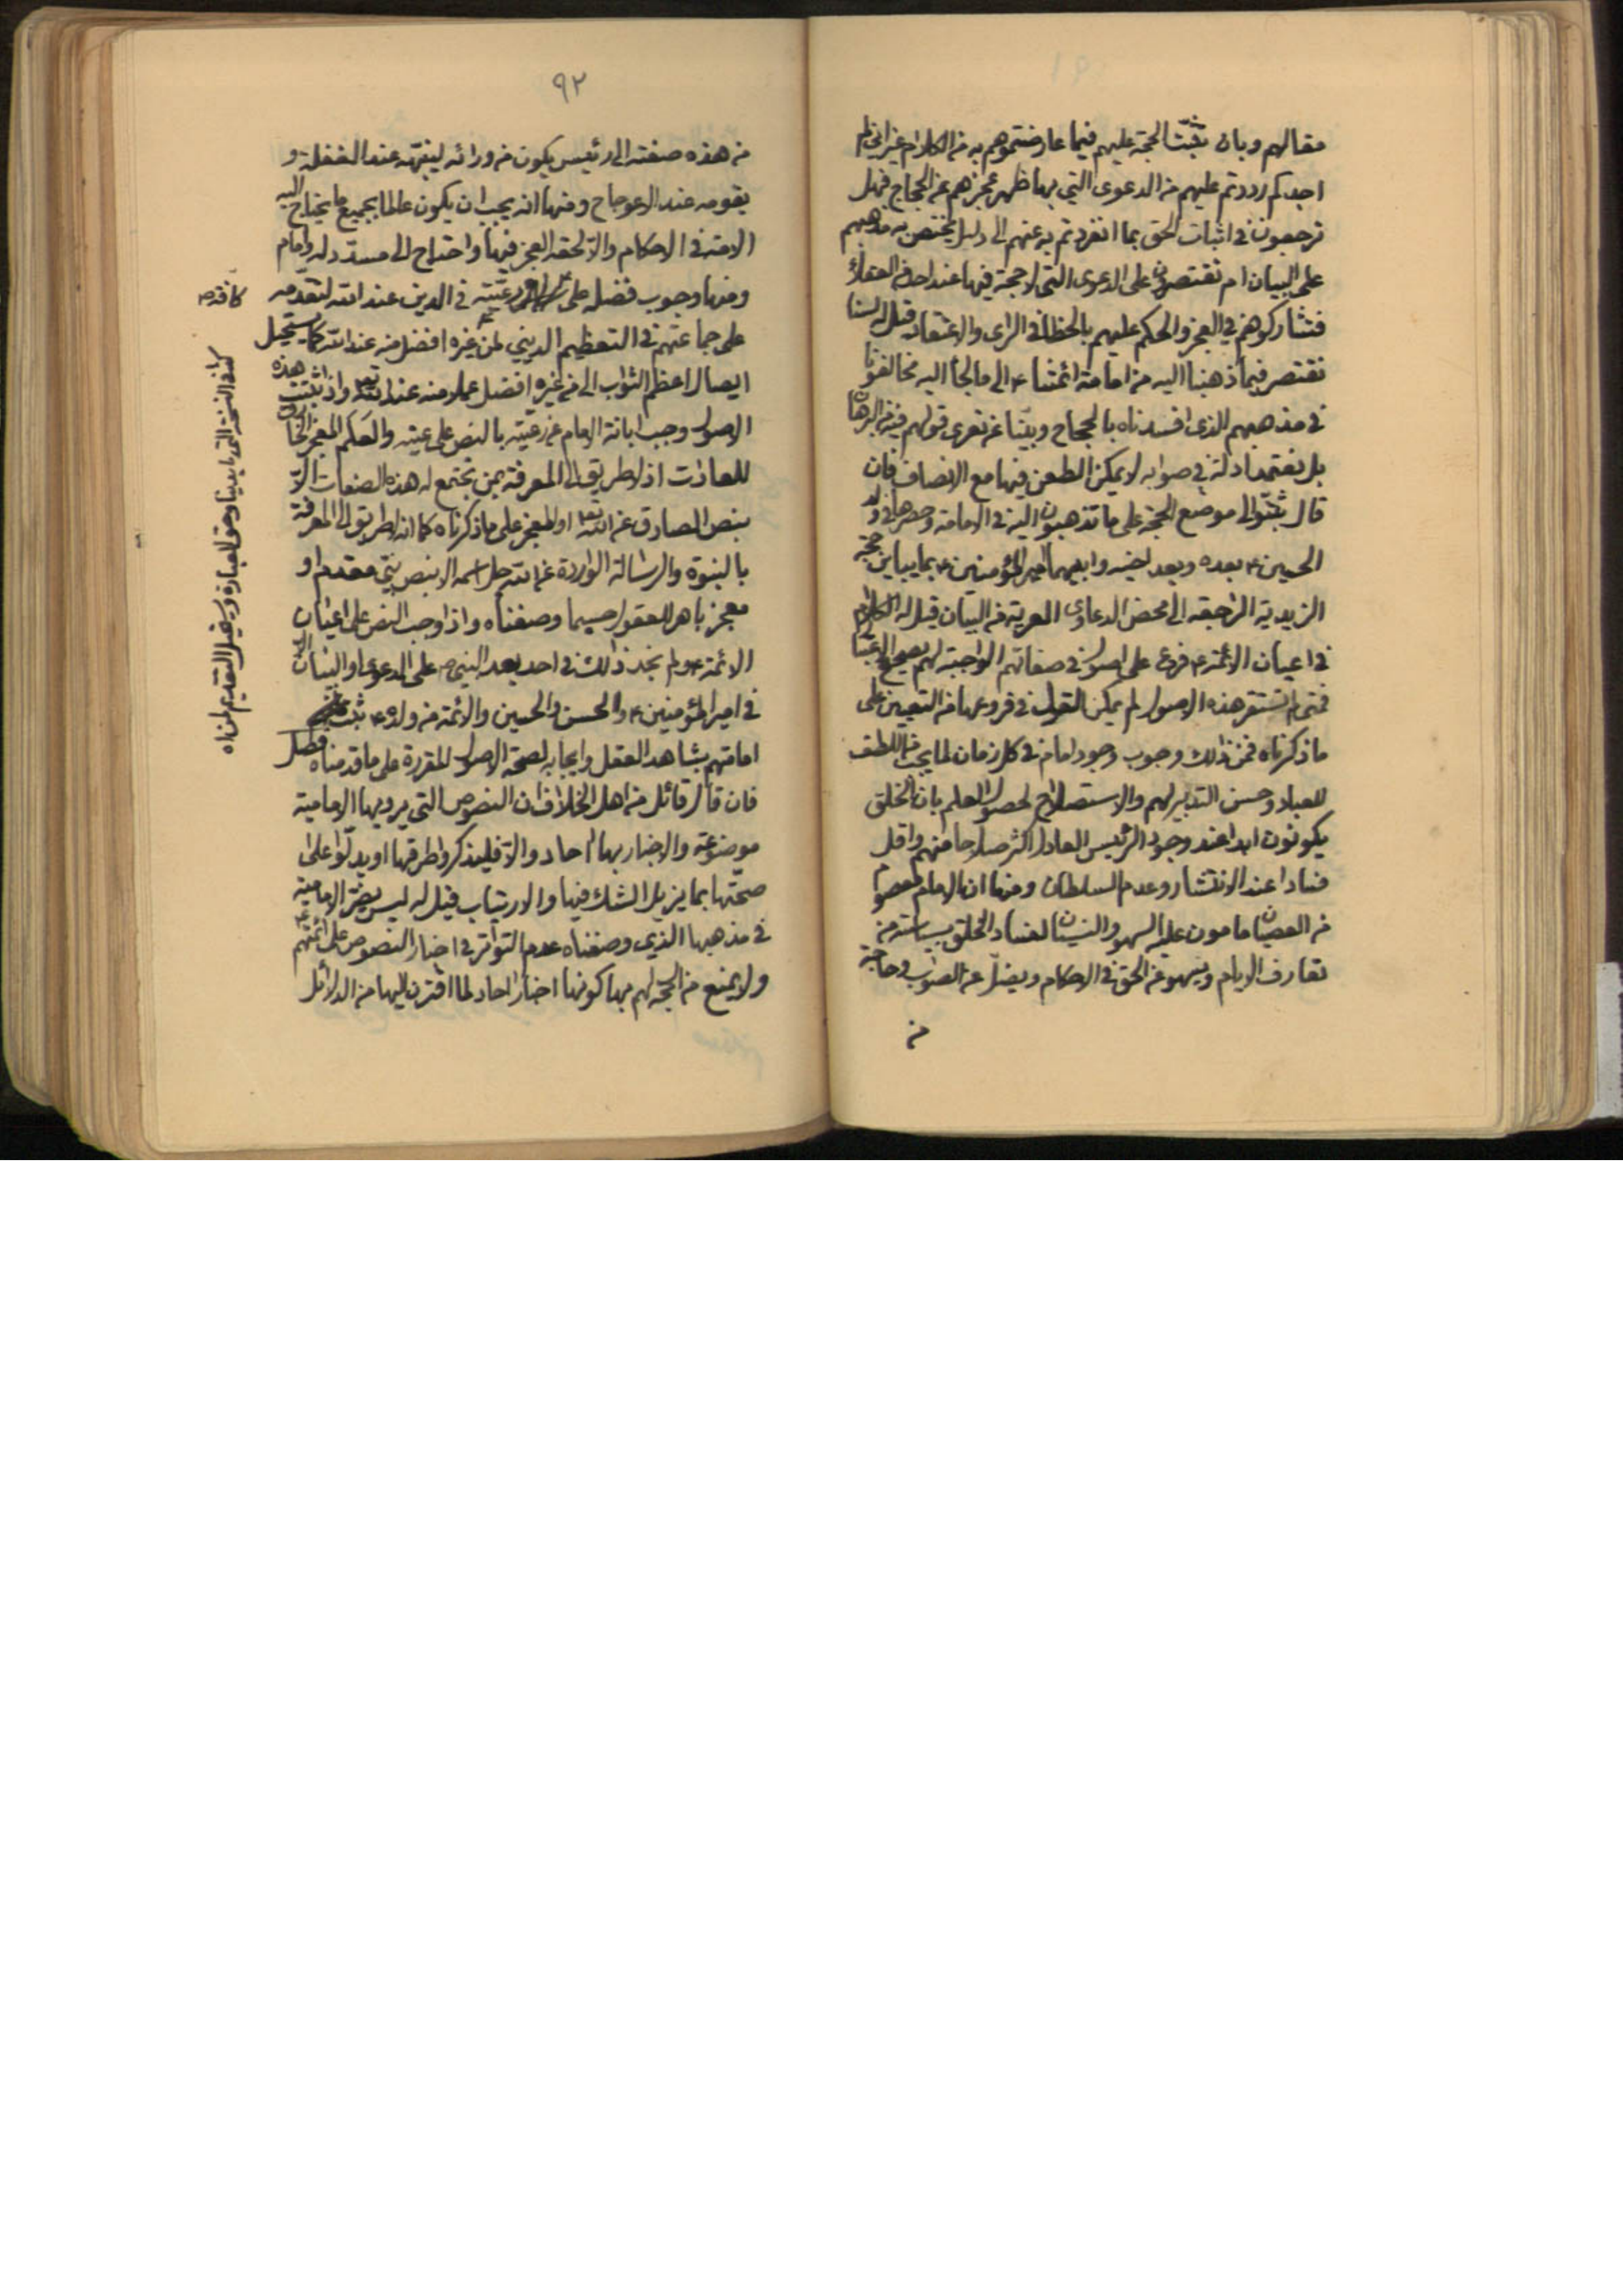 مقالهم وبان تثبت الحجة عليهم فيما عارضتموهم به من الكلام غير اني لم
اجدكم رددتم عليهم من الدعوى التي بها ظهر عجزهم عن الحجاج فهل
ترجعون في اثبات الحق بما انفردتم به عنهم الى دليل يختص به مذهبهم
على البيان ام تقتصرون على الدعوى التي لا حجة فيها عند احد من العقلاء
فتشاركوهم في العجز والحكم عليهم بالخطا في الراى والاعتقاد قيل له لسنا
نقتصر فيما ذهبنا اليه من امامة ائمتنا ع الى ما لجأ اليه مخالفونا
في مذهبهم الذى افسدناه بالحجاج وبيّنا عن تعرى قولهم فيه من البرهان
بل نعتمد ادلة في صوابه لا يمكن الطعن فيها مع الانصاف فان
قال بيّنوا لى موضع الحجة على ما تذهبون اليه في الامامة وحصرها في ولد
الحسين ع بعده وبعد اخيه وابيهما امير المؤمنين ع بما يباين حجة
الزيدية الراجعة الى محض الدعاوى المعرية من البيان قيل له الكلام
في اعيان الائمة ع فرع على اصول في صفاتهم الواجبة لهم بصحيح الاعتبار
فمتى لم تستقر هذه الاصول لم يمكن القول في فروعها من التعيين على
ما ذكرناه فمن ذلك وجوب وجود امام في كل زمان لما يجب من اللطف
للعباد وحسن التدبير لهم والاستصلاح لحصول العلم بان الخلق
يكونون ابدا عند وجود الرئيس العادل اكثر صلاحا منهم واقل
فسادا عند الانتشار وعدم السلطان ومنها ان الامام معصوم
من العصيان مامون عليه السهو والنسيان لفساد الخلق بسياسة من
تقارف الاثام ويسهو عن الحق في الاحكام ويضلّ عن الصواب وحاجة
من
٩٢
من هذه صفته الى رئيس يكون من ورائه لينبهه عند الغفلة و
يقومه عند الاعوجاج ومنها انه يجب ان يكون عالما بجميع ما يحتاج اليه
الامة في الاحكام والّا لحقه العجز فيها واحتاج الى مسدّد له وامام
ومنها وجوب فضله على رعيّته في الدين عند الله لتقدّمه
على جماعتهم في التعظيم الديني لمن غيره افضل منه عند الله كما يستحيل
ايصال اعظم الثواب الى من غيره افضل عملا منه عند الله تع واذا ثبتت هذه
الاصول وجب ابانة الامام عن رعيّته بالنص على عينه والعلم المعجز الخارق
للعادات اذ لا طريق الى المعرفة بمن يجتمع له هذه الصفات الّا
بنص الصادق عن الله تع او المعجز على ما ذكرناه كما انه لا طريق الى المعرفة
بالنبوة والرسالة الواردة عن الله جل اسمه الا بنص نبي متقدم او
معجز باهر للعقول حسبما وصفناه واذا وجب النص على اعيان
الائمة ع ولم نجد ذلك في احد بعد النبي ص على الدعوى او البيان الا
في امير المؤمنين ع والحسن والحسين والائمة من ولده ع ثبت
امامتهم بشاهد العقل وايجابه لصحة الاصول المقررة على ما قدمناه فصل
فان قال قائل من اهل الخلاف ان النصوص التي يرويها الامامية
موضوعة والاخبار بها احاد والّا فليذكروا طرقها او يدلّوا على
صحّتها بما يزيل الشك فيها والارتياب قيل له ليس يضرّ الامامية
في مذهبها الذي وصفناه عدم التواتر في اخبار النصوص على ائمتهم ع
ولا يمنع من الحجة لهم بها كونها اخبار احاد لما اقترن اليها من الدلائل
كافة
كذا في النسخة التي بايدينا وحق العبارة